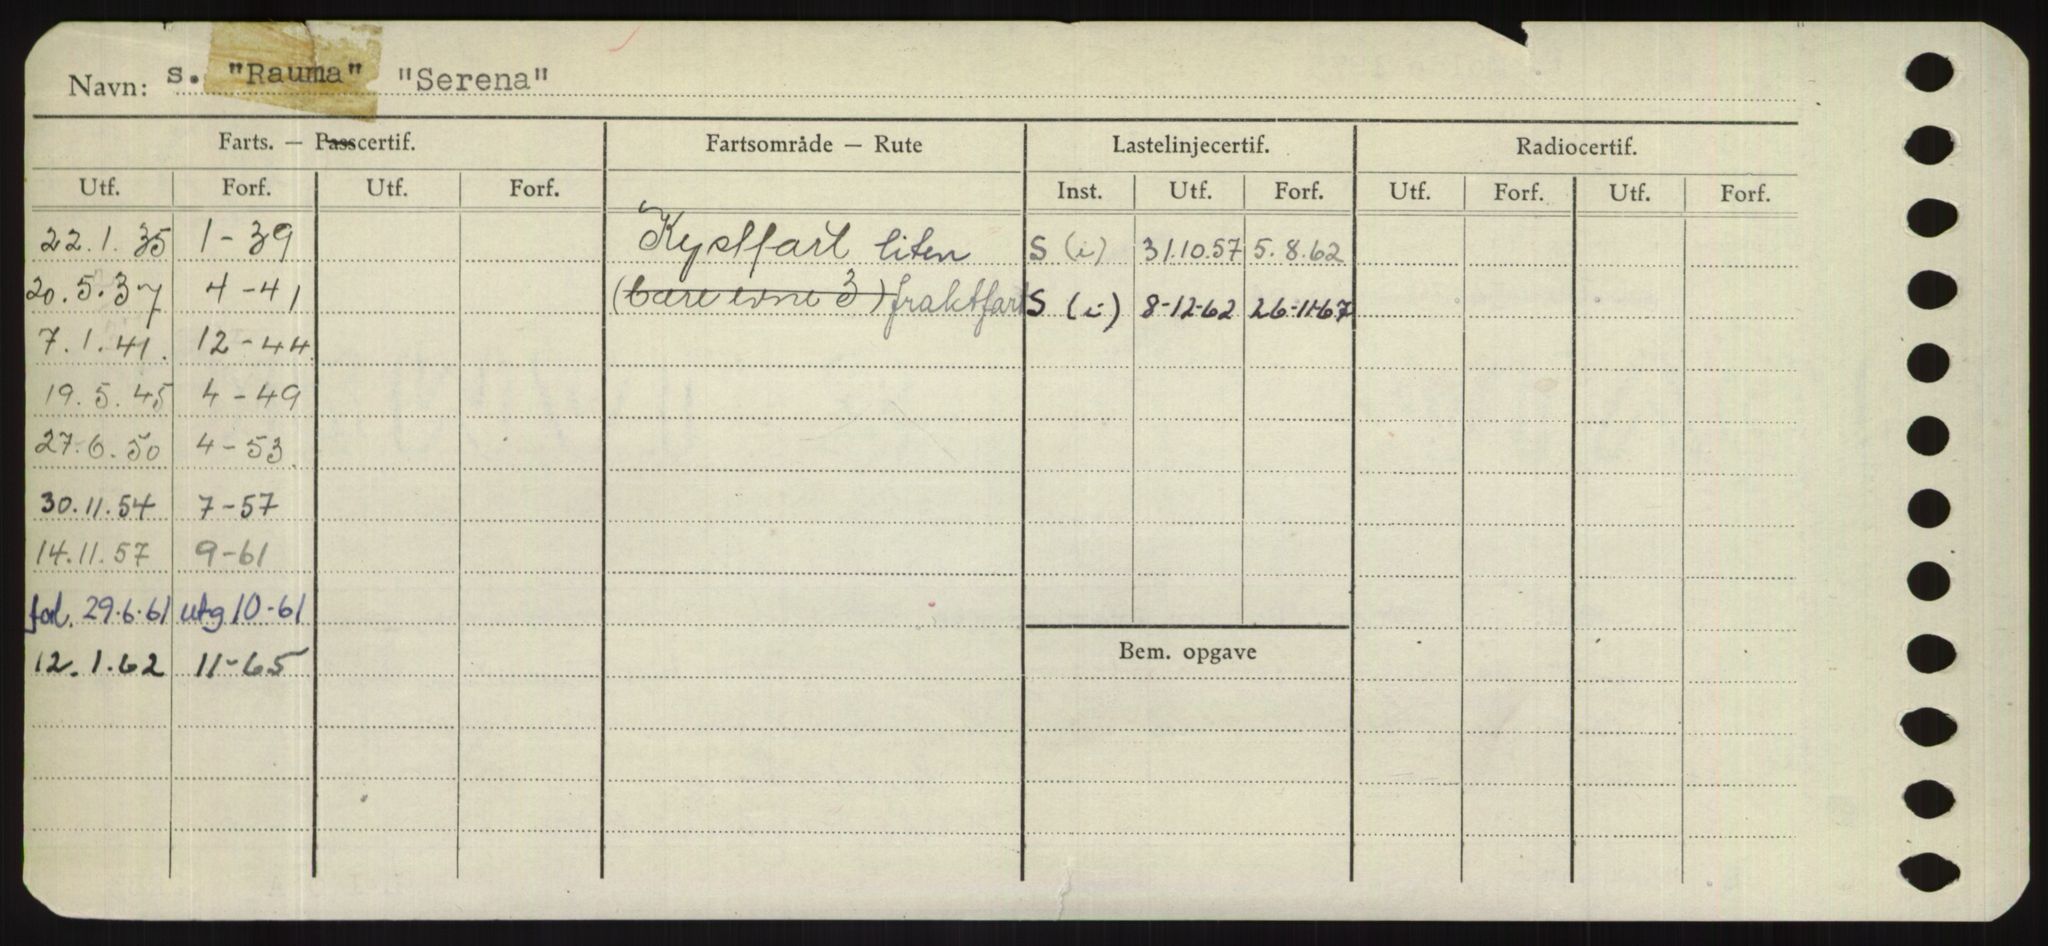 Navn: s. "Rauma" "Serena"
Farts. — Passcertif. Fartsområde — Rute Lastelinjecertif. Radiocertif.
Utf. Forf. Utf. Forf. Inst. Utf. Forf. Utf. Forf. Utf. Forf.
22.1.35 1-39 Kystfart liten S (i) 31.10.57 5.8.62
20.5.37 4-41 (bare 3) fraktfart S (i) 8-12-62 26-11-67
7.1.41. 12-44.
19.5.45 4-49
27-6.50 4-53.
30.11.54 7-57
14.11.57 9-61
forl. 29.6.61 utg 10-61
12.1.62 11-65
Bem. opgave